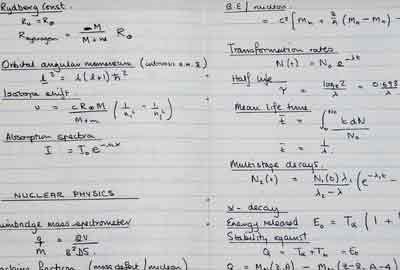 Rydberg Const.
R₀ = R∞
R hydrogen = M / M+m R∞
Orbital angular momentum
l² = l(l+1)ħ²
Isotope shift.
υ = cR∞M / M+m (1/n₁² - 1/n₂²)
Absorption spectra
I = I₀e
NUCLEAR PHYSICS
mass spectrometer
q/m =
fraction (mass defect / nucleon)
B.E / nucleon
= c² [Mn + (MH - Mn) -
Transformation rates
N(t) = N₀ e^-λt
Half life
τ = loge2 / λ = 0.693
Mean life time
t̄ = ∫ t dN / N₀
t̄ = 1/λ
Multistage decays.
N₂(t) = N₁(0) λ₁ / λ₂ - λ₁ (e^-λ₁t -
α - decay
Energy released E₀ = Tα (1 +
Stability against
Q = Tα + Tb = E₀